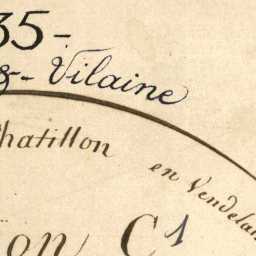 35-
&- Vilaine
Chatillon
en Vendelais
on C